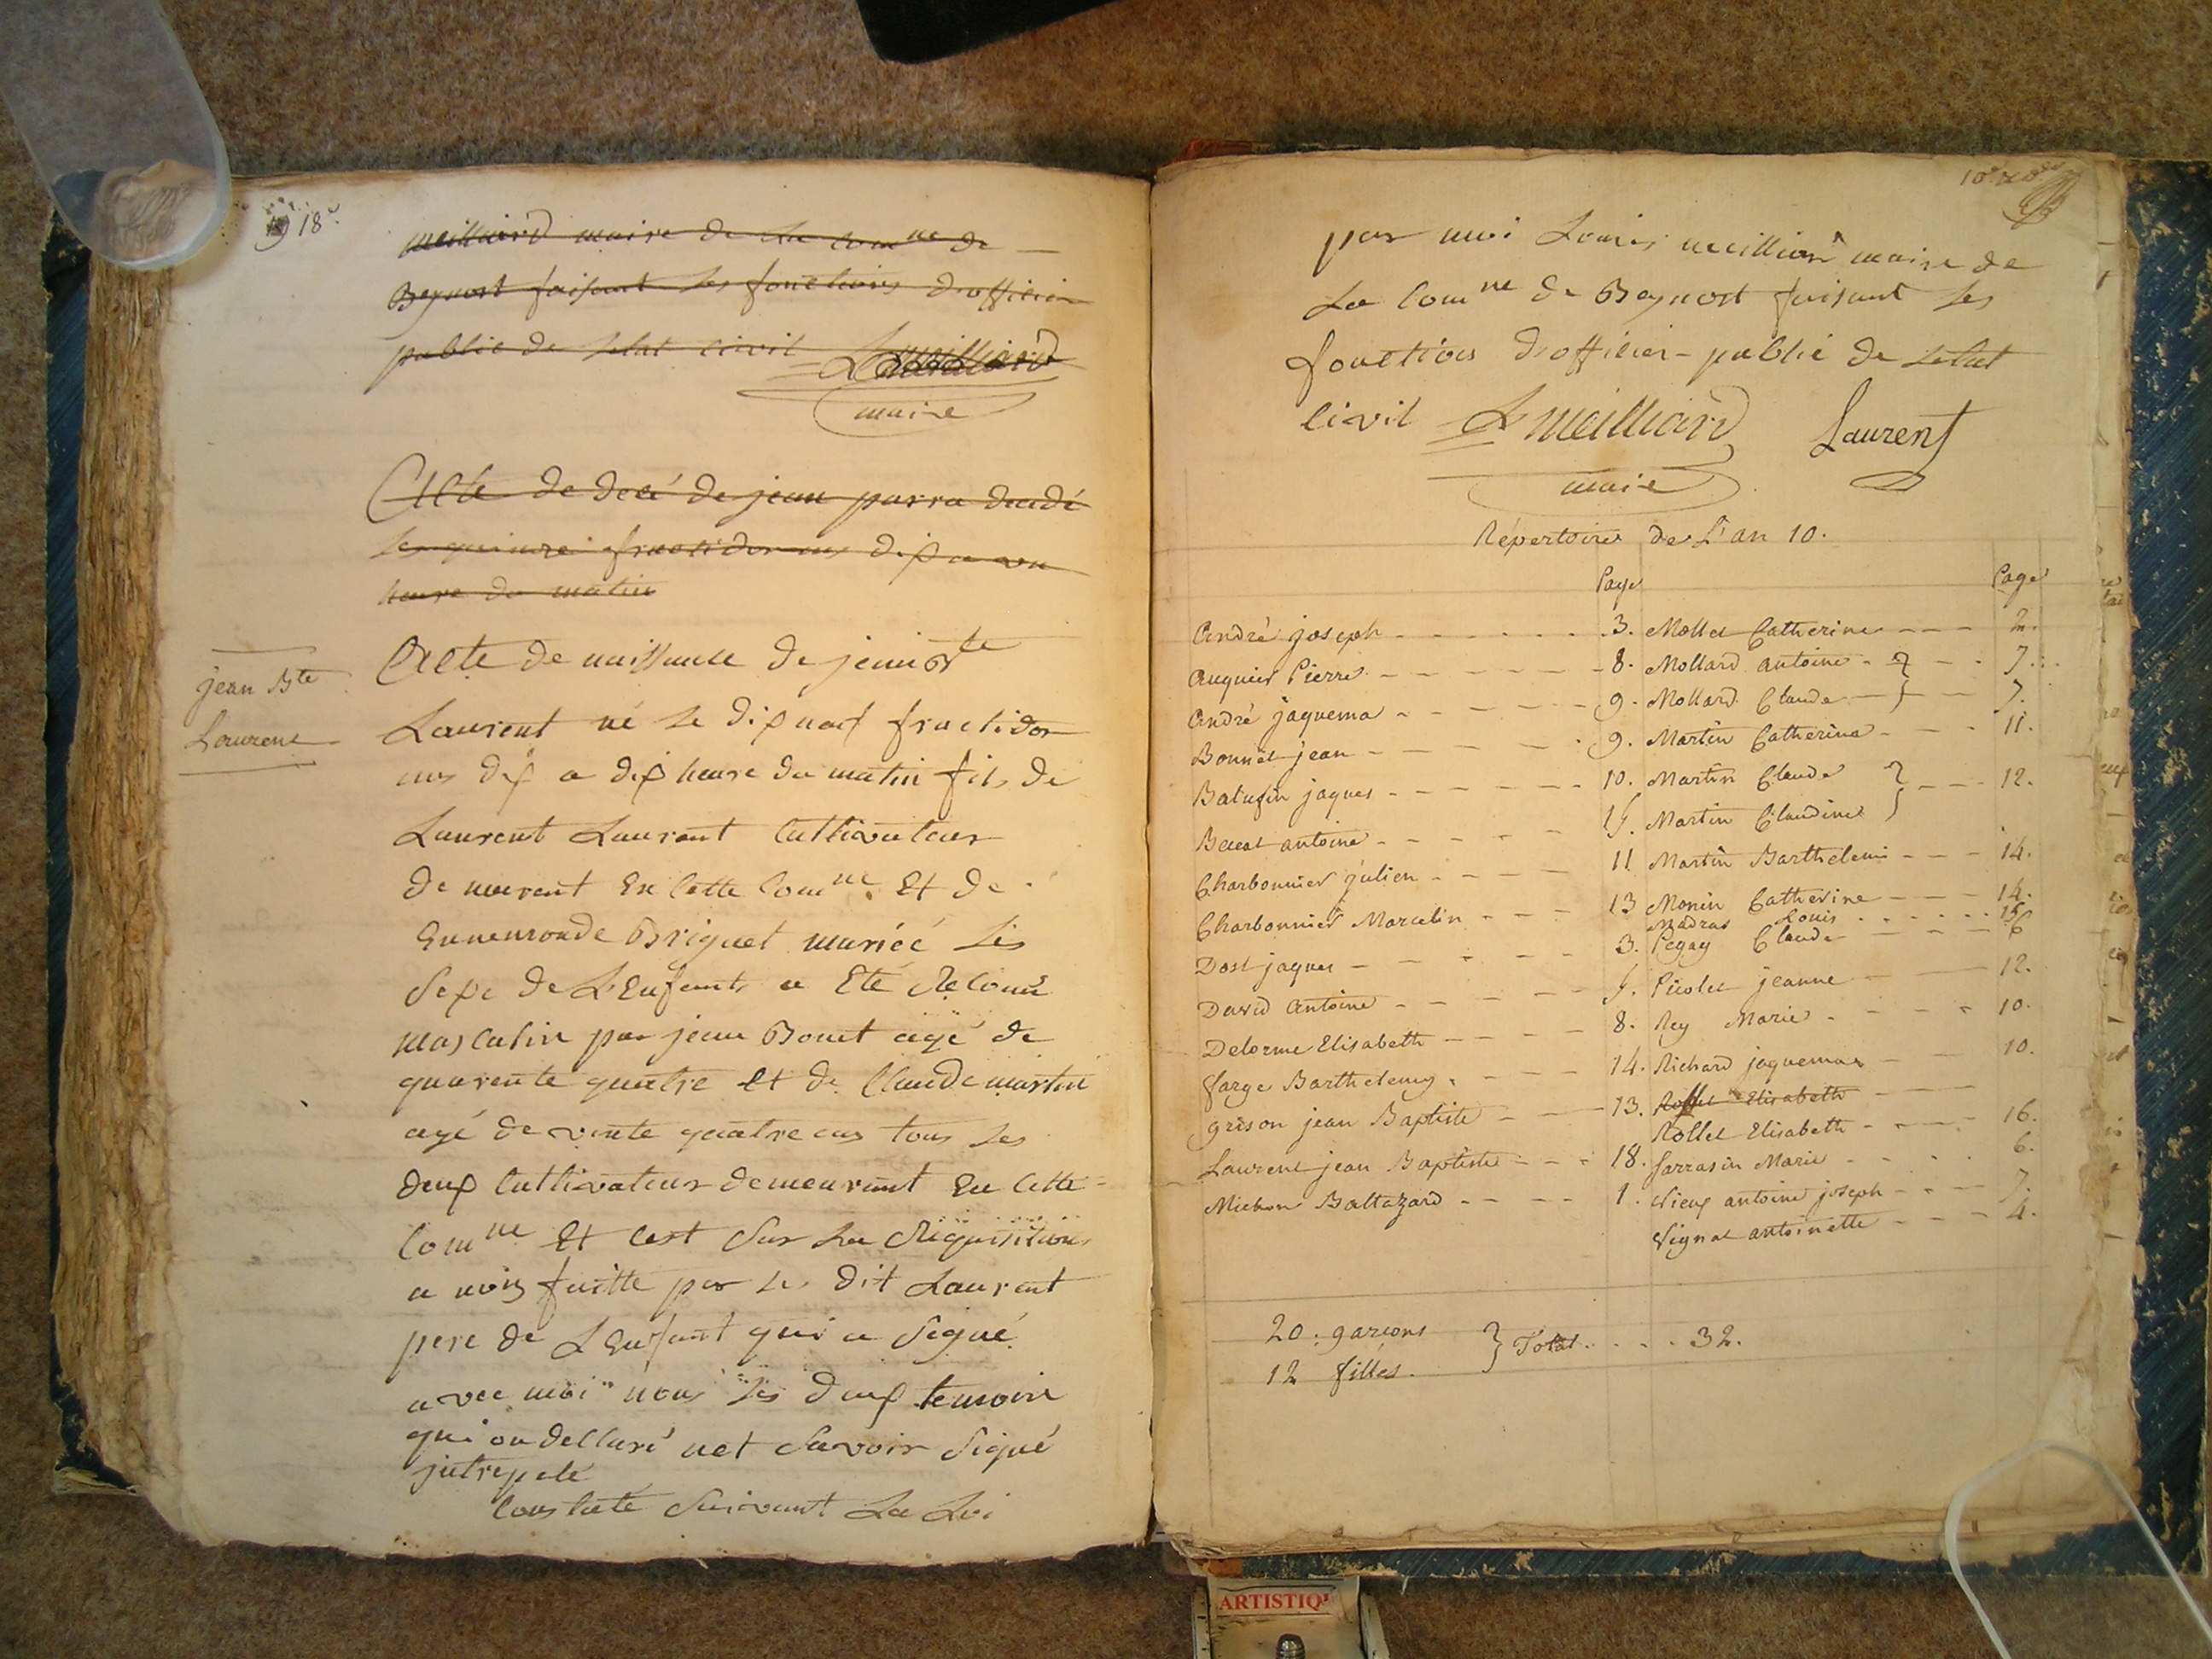 18e
meilliard maire de la comne de
Beynost faisant les fonctions d'officier
public de letat civil L meilliard
maire
Acte de decé de jean parra decedé
les quinze fructidor ans dix a un
heure du matin
jean Bte
Laurent
Acte de naissance de jean Bte
Laurent né le dix neuf fructidor
ans dix a dix heure du matin fils de
Laurent Laurent Cultivateur
demeurent En Cette Comne Et de
Ennemonde Briguet mariée les
Sexe de L'Enfant a Eté Reconu
masculin par jean Bonet agé de
quarente quatre et de Claude martin
agé de vinte quatre ans tous les
deux Cultivateurs demeurant En Cette
Comne Et Cest Sur La Réquisitions
a nois faitte par le dit Laurent
pere de L'Enfant qui a Signé
avec moi nous les deux temoin
qui on dellaré net Savoir Signé
jntrepelé
Constaté Suivant La Loi
par moi Louis meilliard maire de
La Comne de Beynost faisant les
fonctions d'officier public de letat
Civil L meilliard Laurent
maire
Répertoire de L'an 10.
Page Page
André joseph 3. Mollet Catherine 2.
Auquier Pierre 8. Mollard antoine 7.
André jaquema 9. Mollard Claude 7.
Bonnet jean 9. Martin Catherine 11.
Batusin jaques 10. Martin Claude 12.
antoine Martin Claudine
Charbonnier julien 11 Martin Barthelemi 14.
Charbonnier Marcelin 13 Monin Catherine 14.
Madras Louis 15
Dost jaques 3. Pegay Claude 6
David Antoine Picolet jeanne 12.
Delorme Elisabeth 8. Rey Marie 10.
farge Barthelemy 14. Richard jaquemar 10.
grison jean Baptiste 13. Rollet Elisabeth
Rollet Elisabeth 16.
Laurent jean Baptiste 18. Sarrasin Marie 6.
Michon Baltazard 1. Vieux antoine joseph 7.
Vignat antoinette 4.
20. garçons
12 filles. } Total 32.
ARTISTIQ